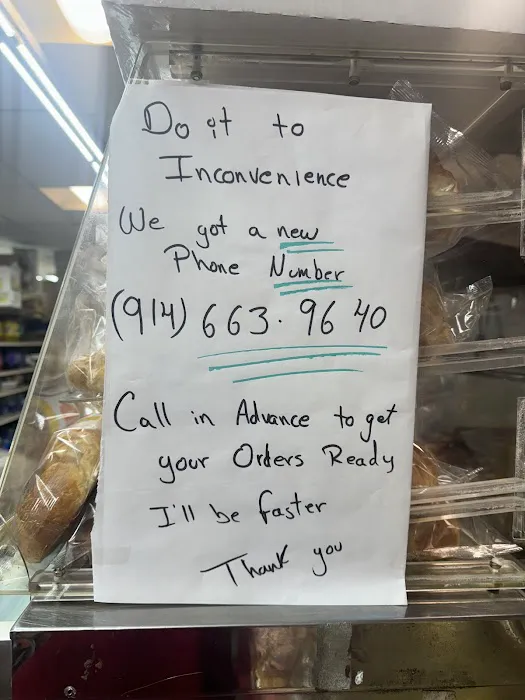 Do it to
Inconvenience
We got a new
Phone Number
(914) 663.9640
Call in Advance to get
your Orders Ready
I'll be faster
Thank you